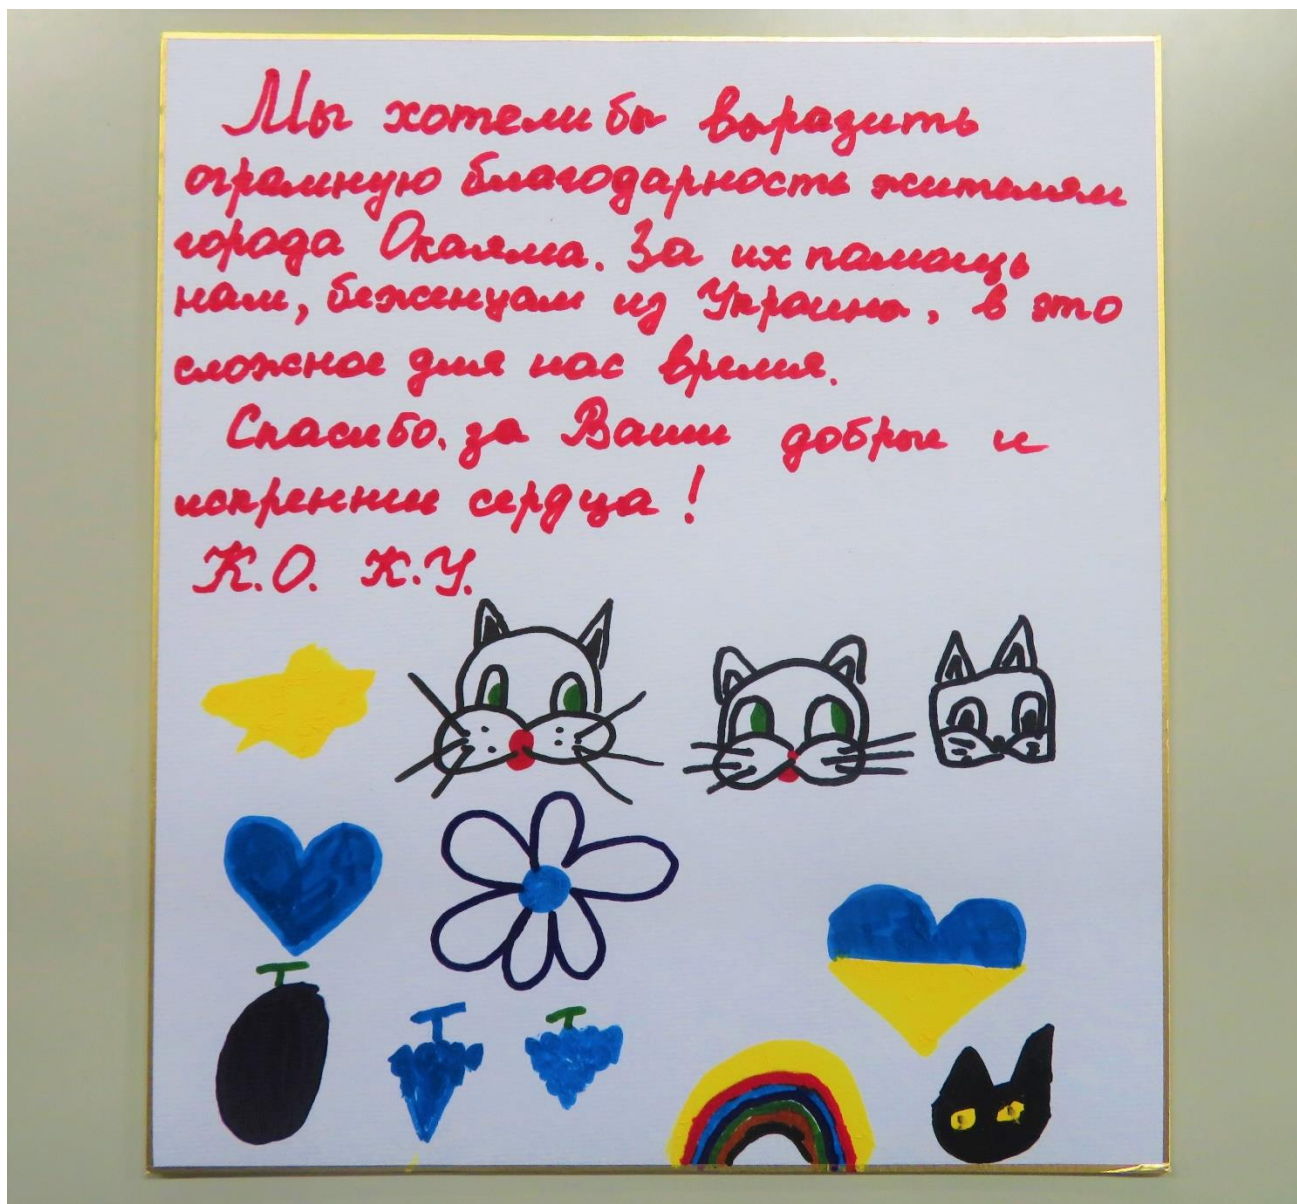 Мы хотели бы выразить
огромную благодарность жителям
города Окаяма. За их помощь
нам, беженцам из Украины, в это
сложное для нас время.
Спасибо, за Ваши добрые и
искренние сердца!
К.О. К.У.